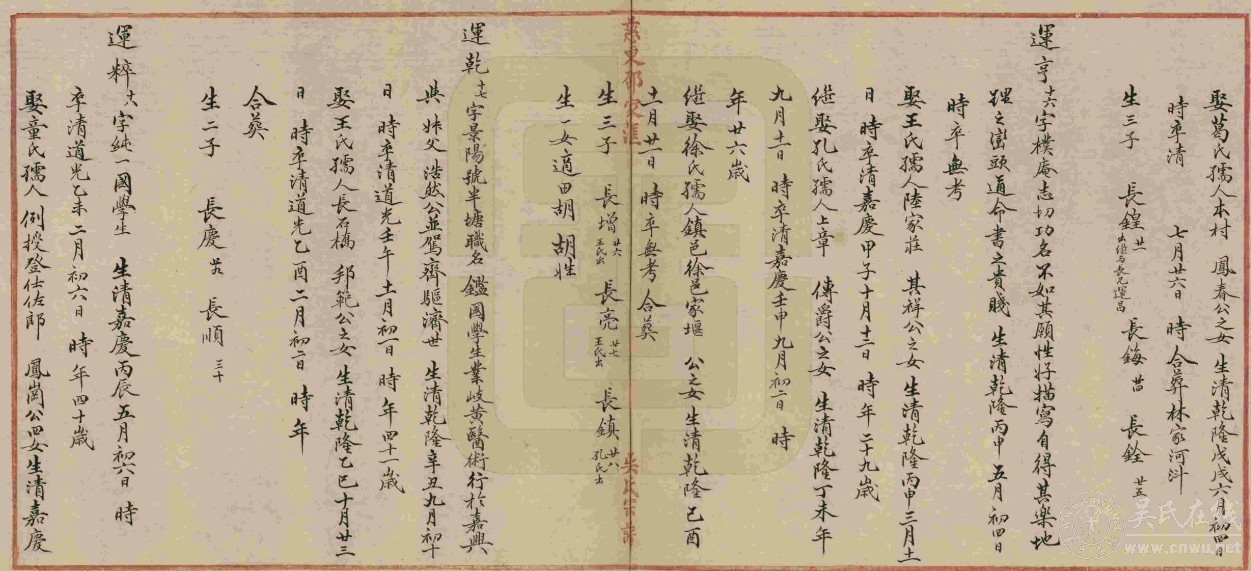 娶葛氏孺人本村 鳳春公之女 生清乾隆戊戌六月初四日
時卒清 七月廿六日 時 合葬林家河泮
生三子 長鍠廿一出繼与長兄運昌 長鋂廿四 長銓廿五
運亨十六字樸庵志切功名不如其願性好描寫自得其樂地
理之巒頭通命書之貴賤 生清乾隆丙申 五月初四日
時卒無考
娶王氏孺人陸家莊 其祥公之女 生清乾隆丙申三月十一
日 時卒清嘉慶甲子十月十二日 時 年二十九歲
繼娶孔氏孺人上章 傳爵公之女 生清乾隆丁未年
九月十一日 時卒清嘉慶壬申九月初二日 時
年廿六歲
繼娶徐氏孺人鎮邑徐邑家堰 公之女 生清乾隆己酉
十一月廿一日 時卒無考合葬
生三子 長增廿六王氏出 長亮廿七王氏出 長鎮廿八孔氏出
生一女適田胡 胡姓
慈東邵家滙
吳氏宗譜
運乾十七字景陽號半塘職名 鑑國學生業岐黃醫術行於嘉興
與 姊父 浩然公並駕齊驅濟世 生清乾隆辛丑九月初十
日 時卒清道光壬午十一月初一日 時 年四十一歲
娶王氏孺人長石橋 邦範公之女 生清乾隆乙巳十月廿三
日 時卒清道光乙酉二月初二日 時 年
合葬
生二子 長慶廿九 長順三十
運粹十八 字純一國學生 生清嘉慶丙辰五月初六日 時
卒清道光乙未二月初六日 時 年四十歲
娶童氏孺人 例授登仕佐郎 鳳崗公四女生清嘉慶
吳氏在線
www.cnwu.net